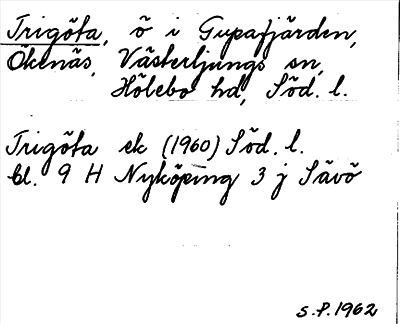 Trigöta, ö i Gupafjärden,
Ökenäs, Västerljungs sn,
Hölebo hd, Söd. l.
Trigöta ek (1960) Söd. l.
bl. 9 H Nyköping 3 j Sävö
S.P. 1962